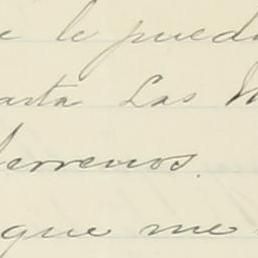 e le pued
arta Las M
terrenos.
que me